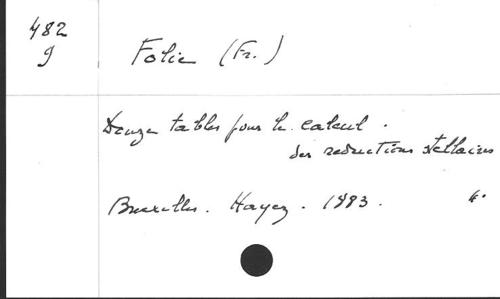 482
g
Folie (Fr.)
Douze tables pour le calcul.
des reductions stellaires
Bruxelles. Hayez. 1883. 4°.